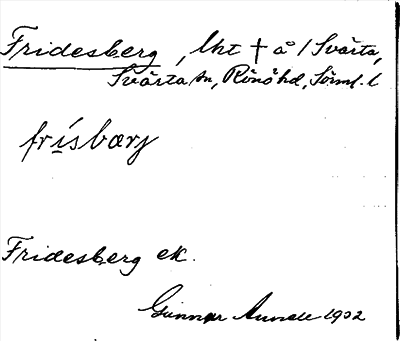 Fridesberg, lht † å / Svärta,
Svärta sn, Rönö hd, Sörml. l
frísbærj
Fridesberg ek.
Gunnar 1932